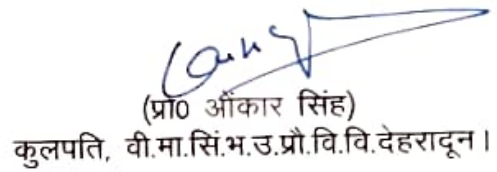 (प्रो0 ओंकार सिंह)
कुलपति, वी.मा.सिं.भ.उ.प्रौ.वि.वि.देहरादून।